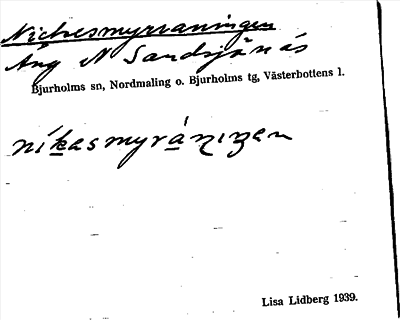 Nickesmyrvaningen
Äng N Sandsjönäs
Bjurholms sn, Nordmaling o. Bjurholms tg, Västerbottens l.
níkasmyrániŋen
Lisa Lidberg 1939.